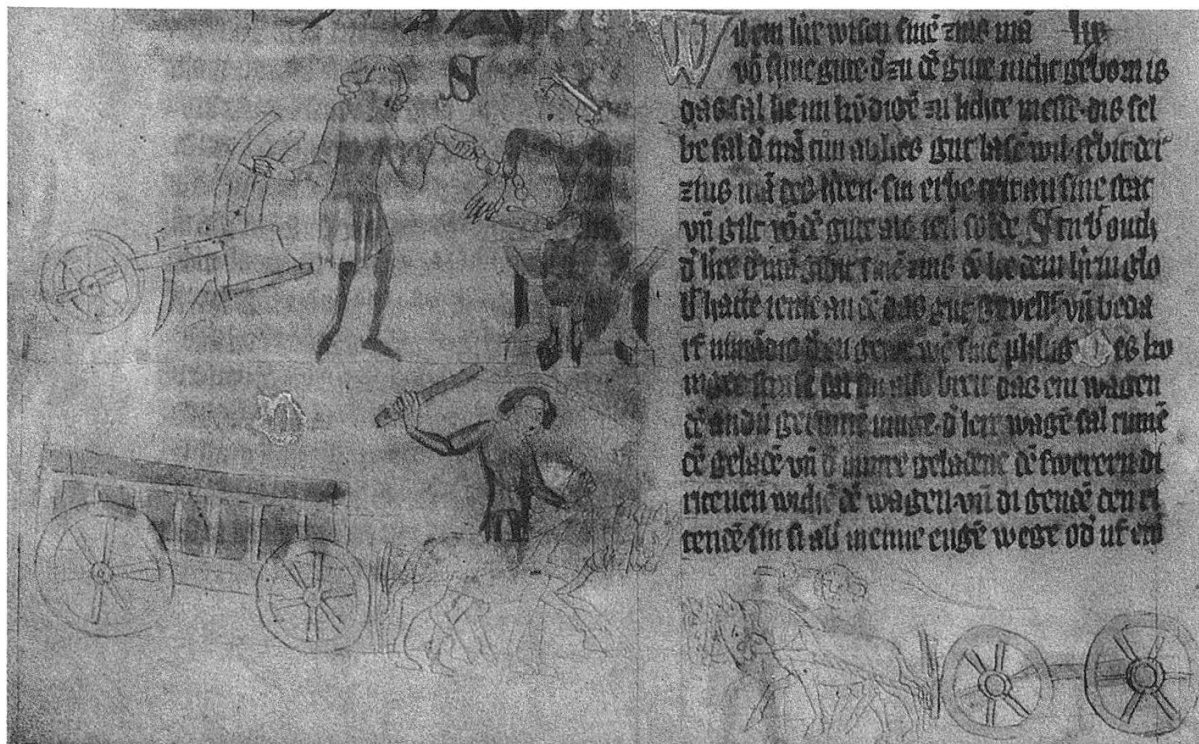 Wil ein h're wisen sinē zins mā
vō sime gute d' zu dē gute nicht geborn is
das sal he im kūdigē zu lichte messe. dis sel
be sal d' mā tun ab h'es gut lasē wil. stirbit der
zins mā des h'ren. sin erbe trit an sine stat
vn̄ gilt vō dē gute als ien' solde. Stirbt ouch
d' h're d' mā gibit sinē zins dē dem h'rn glo
b't hatte iene an dē das gut gevelt. vn̄ beda
rf nimādis wē sinē phlug. Des ku
niges strase sal sin also breit das ein wagen
dē andn̄ gerumē muge. d' lere wagē sal rumē
dē geladē vn̄ d' minre geladene dē swerern di
ritenen wichē dē wagen. vn̄ di gendē den ri
tendē. sin si ab in eime engē wege od' uf ein
S